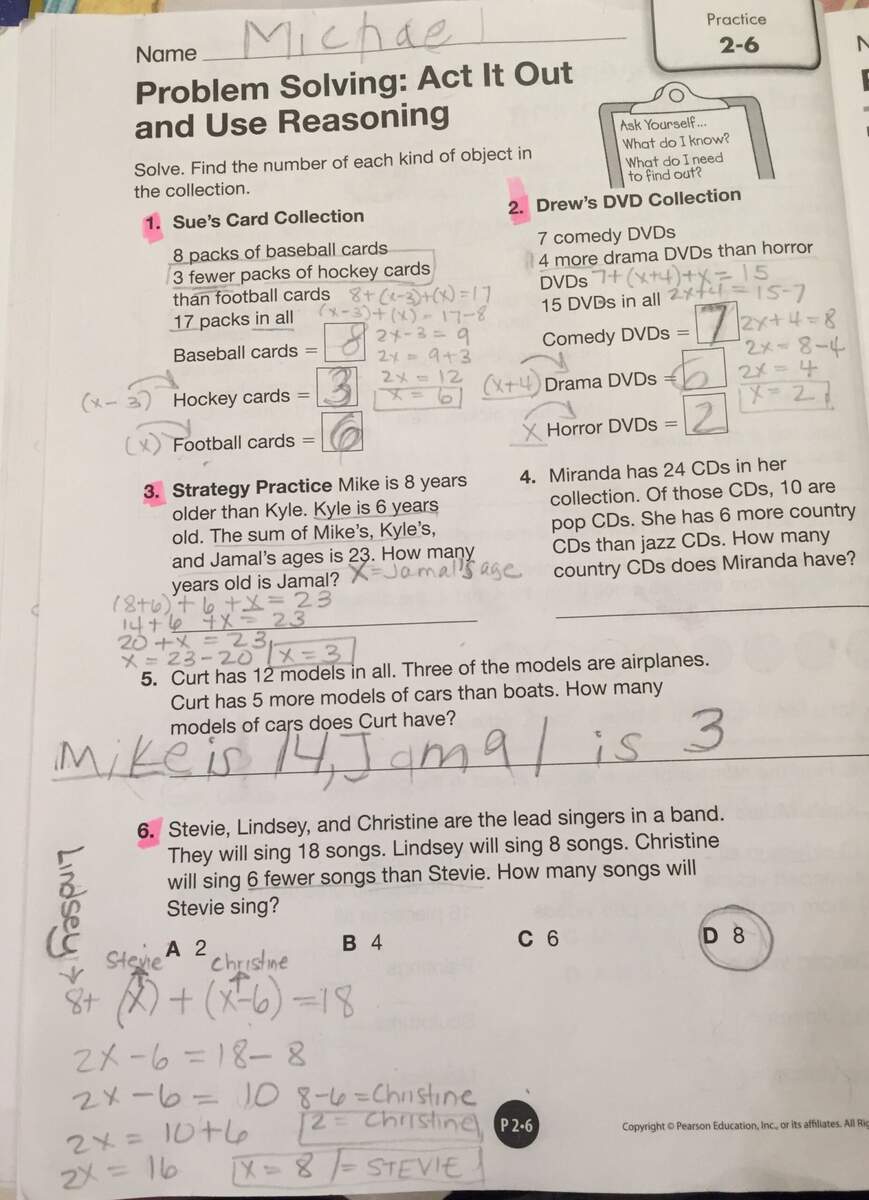 Practice
2-6
Name Michael
Problem Solving: Act It Out
and Use Reasoning
Ask Yourself...
What do I know?
What do I need
to find out?
Solve. Find the number of each kind of object in
the collection.
1. Sue's Card Collection
8 packs of baseball cards
3 fewer packs of hockey cards
than football cards 8+(x-3)+(x)=17
17 packs in all (x-3)+(x) = 17-8
2x-3 = 9
Baseball cards = 8
2x = 9+3
2x = 12
(x-3) Hockey cards = 3
x = 6
(x) Football cards = 6
2. Drew's DVD Collection
7 comedy DVDs
4 more drama DVDs than horror
DVDs 7+(x+4)+x = 15
15 DVDs in all 2x+4 = 15-7
Comedy DVDs = 7 2x+4=8
2x = 8-4
(x+4) Drama DVDs = 6 2x = 4
x = 2
x Horror DVDs = 2
3. Strategy Practice Mike is 8 years
older than Kyle. Kyle is 6 years
old. The sum of Mike's, Kyle's,
and Jamal's ages is 23. How many
years old is Jamal? X=Jamal's age
(8+6) + 6 + x = 23
14+6 +x = 23
20 +x = 23
x = 23-20 x = 3
4. Miranda has 24 CDs in her
collection. Of those CDs, 10 are
pop CDs. She has 6 more country
CDs than jazz CDs. How many
country CDs does Miranda have?
5. Curt has 12 models in all. Three of the models are airplanes.
Curt has 5 more models of cars than boats. How many
models of cars does Curt have?
Mike is 14, Jamal is 3
6. Stevie, Lindsey, and Christine are the lead singers in a band.
They will sing 18 songs. Lindsey will sing 8 songs. Christine
will sing 6 fewer songs than Stevie. How many songs will
Stevie sing?
A 2 B 4 C 6 D 8
Lindsey
Stevie Christine
8+ (x) + (x-6) =18
2x-6 = 18-8
2x-6 = 10 8-6=Christine
2x = 10+6 2 = Christine
2x = 16 x = 8 = STEVIE
P 2•6
Copyright © Pearson Education, Inc., or its affiliates. All